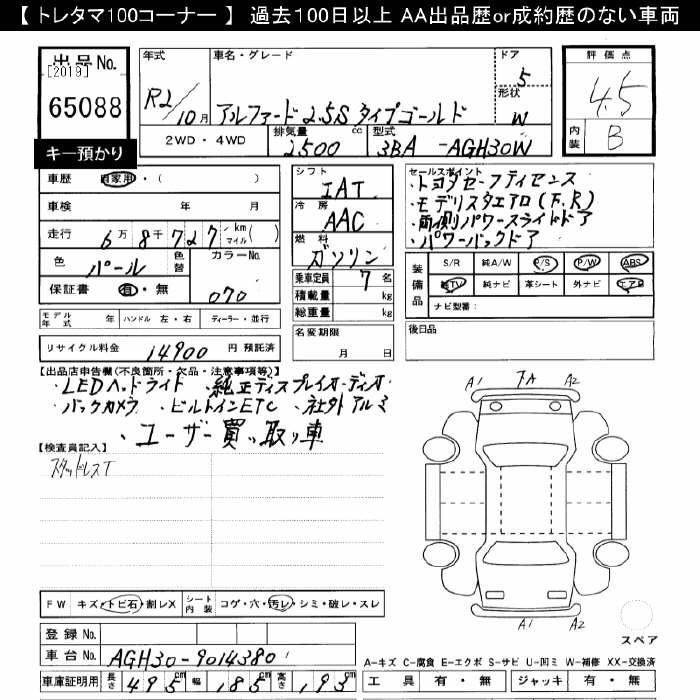 【 トレタマ100コーナー 】 過去100日以上 AA出品歴or成約歴のない車両
出品No.
[2019]
65088
キー預かり
年式 車名・グレード ドア
R2/10月 アルファード 2.5S タイプゴールド 5
形状 W
2WD・4WD 排気量 2500 cc 型式 3BA-AGH30W
評価点
4.5
内装 B
車歴 自家用・( )
車検 年 月
走行 6万8千727 km マイル ( )
色 パール 色替 カラーNo. 070
保証書 有・無
シフト IAT
冷房 AAC
燃料 ガソリン
乗車定員 7 名
積載量 kg
総重量 kg
名変期限
月 日
セールスポイント
・トヨタセーフティセンス
・モデリスタエアロ(F.R)
・両側パワースライドドア
・パワーバックドア
装備品 S/R 純A/W P/S P/W ABS
純TV 純ナビ 革シート 外ナビ エアB
ナビ型番:
後日品
モデル年式 年 ハンドル 左・右 ディーラー・並行
リサイクル料金 14900 円 預託済
【出品店申告欄(不良箇所・欠品・注意事項等)】
・LEDヘッドライト ・純正ディスプレイオーディオ
・バックカメラ ・ビルトインETC ・社外アルミ
・ユーザー買い取り車
【検査員記入】
スタッドレスT
A1 7A A2
A1 A2
スペア
FW キズ・トビ石・割レX シート内装 コゲ・穴・汚レ・シミ・破レ・スレ
登録No.
車台No. AGH30-9014380
車庫証明用 長さ 495 cm 幅 185 cm 高さ 193 cm
A-キズ C-腐食 E-エクボ S-サビ U-凹ミ W-補修 XX-交換済
工具 有・無 ジャッキ 有・無